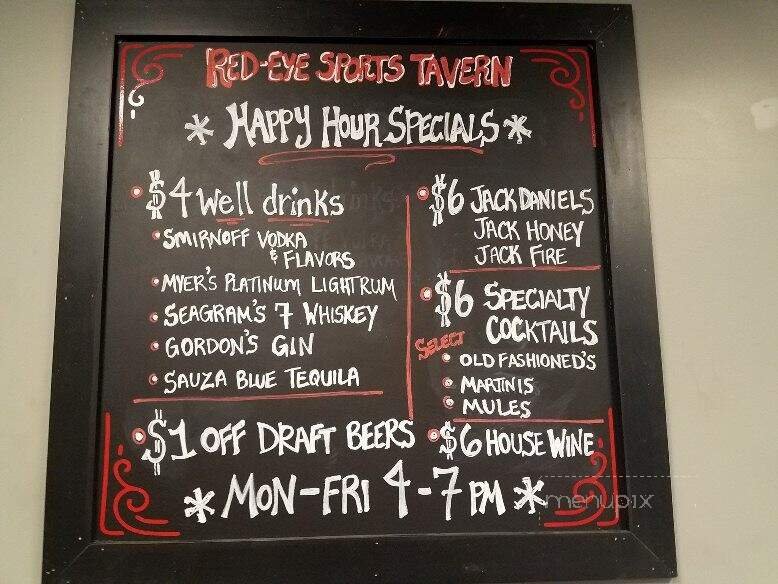 RED-EYE SPORTS TAVERN
* HAPPY HOUR SPECIALS *
• $4 Well drinks
• SMIRNOFF VODKA
& FLAVORS
• MYER'S PLATINUM LIGHT RUM
• SEAGRAM'S 7 WHISKEY
• GORDON'S GIN
• SAUZA BLUE TEQUILA
• $6 JACK DANIELS
JACK HONEY
JACK FIRE
• $6 SPECIALTY
COCKTAILS
SELECT
• OLD FASHIONED'S
• MARTINIS
• MULES
• $1 OFF DRAFT BEERS
• $6 HOUSE WINE
* MON-FRI 4-7 PM *
menupix